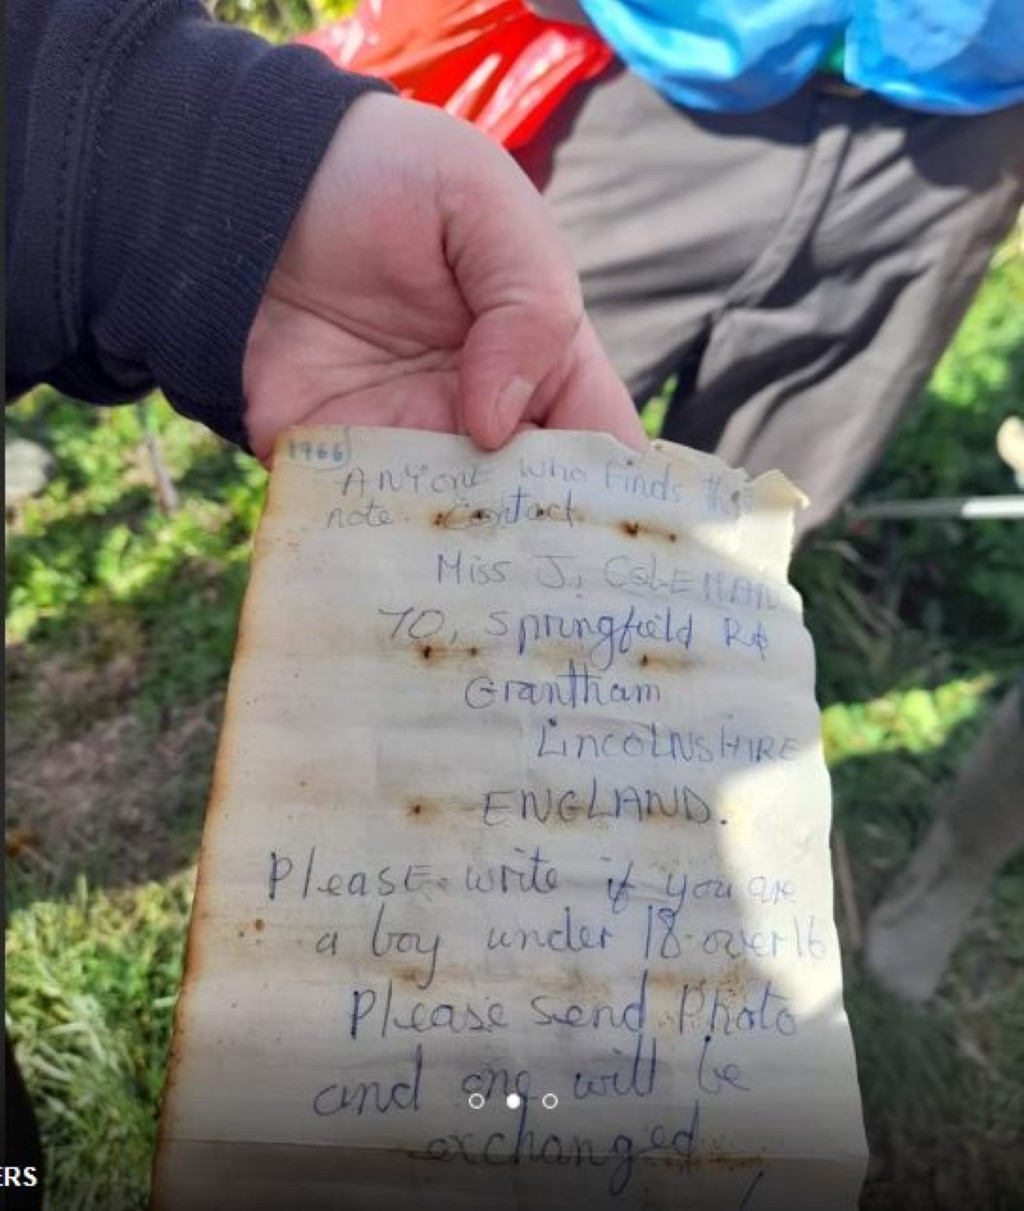 1966
ANYONE who finds this
note. Contact.
Miss J. COLEMAN
70, Springfield Rd
Grantham
LINCOLNSHIRE
ENGLAND.
Please write if you are
a boy under 18 over 16
Please send Photo
and one will be
exchanged
ERS